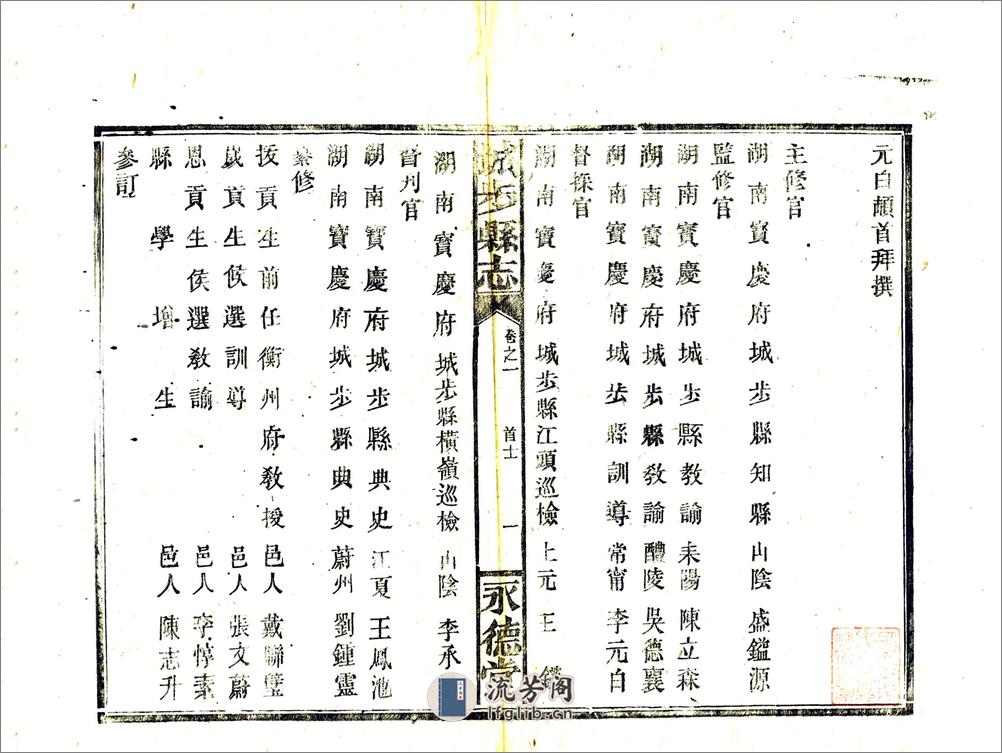 元白頓首拜撰
主修官
湖南寳慶府城步縣知縣山陰盛鎰源
監修官
湖南寳慶府城步縣教諭耒陽陳立森
湖南寳慶府城步縣教諭醴陵吳德襄
湖南寳慶府城步縣訓導常甯李元白
督採官
湖南寳慶府城步縣江頭巡檢上元王
城步縣志
卷之一
首士
一
永德堂
湖南寳慶府城步縣橫嶺巡檢山陰李承
督刋官
湖南寳慶府城步縣典史江夏王鳳池
湖南寳慶府城步縣典史蔚州劉鍾靈
纂修
拔貢生前任衡州府教授邑人戴聯璧
歲貢生候選訓導邑人張文蔚
恩貢生候選教諭邑人李惇素
縣學增生邑人陳志升
參訂
流芳阁
lfglib.cn